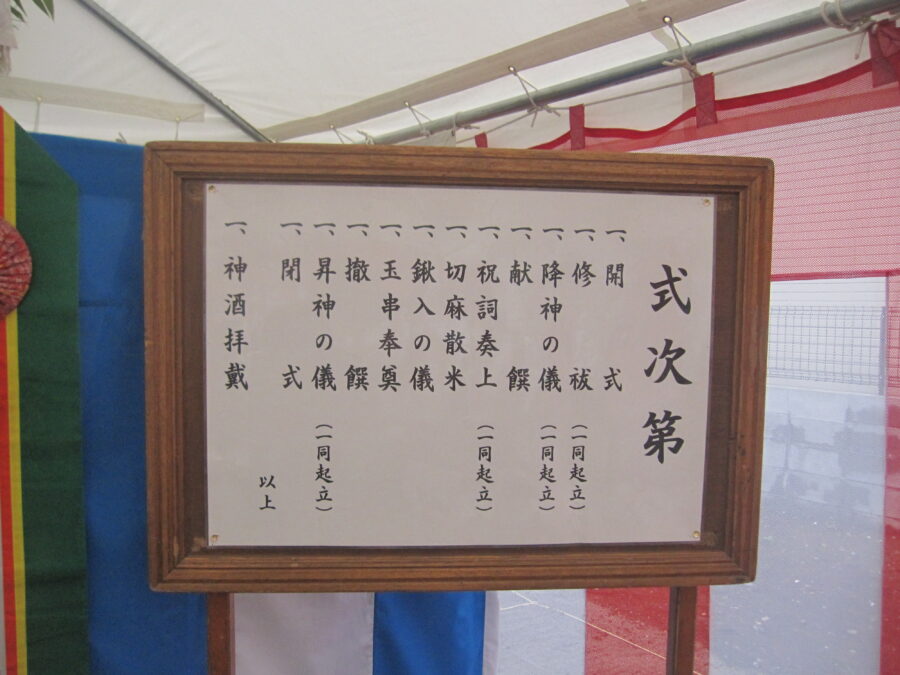 式次第
一、開式
一、修祓（一同起立）
一、降神の儀（一同起立）
一、献饌
一、祝詞奏上（一同起立）
一、切麻散米
一、鍬入の儀
一、玉串奉奠
一、撤饌
一、昇神の儀（一同起立）
一、閉式
以上
一、神酒拝戴